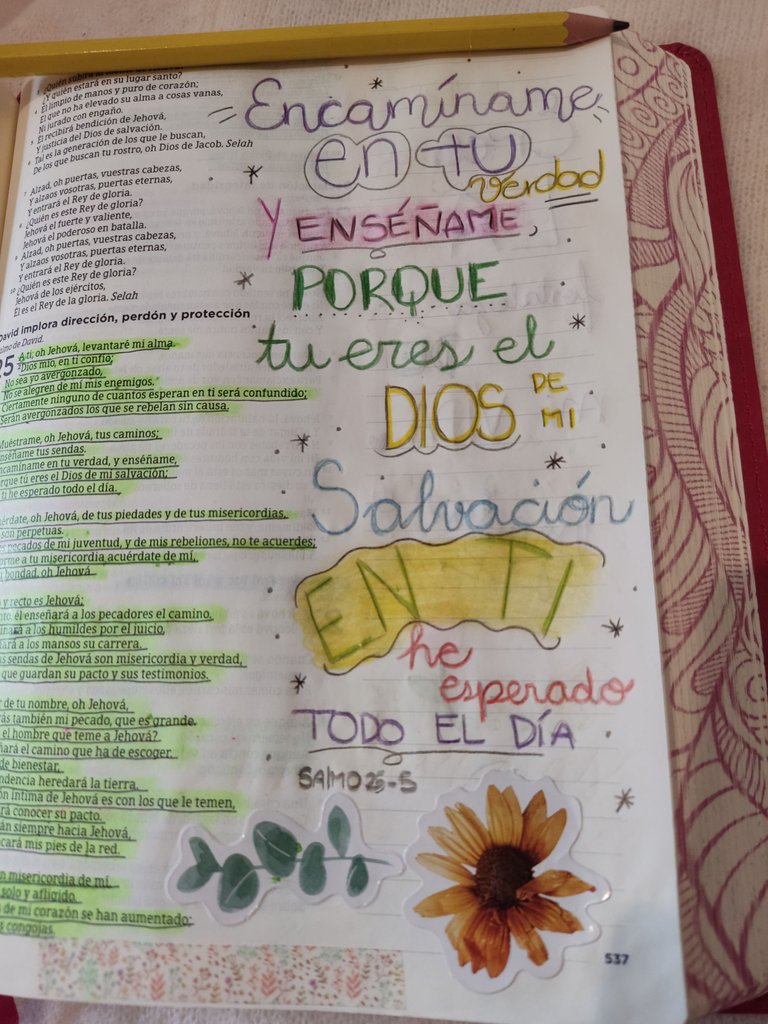 ¿Quién subirá
¿Y quién estará en su lugar santo?
El limpio de manos y puro de corazón;
El que no ha elevado su alma a cosas vanas,
Ni jurado con engaño.
El recibirá bendición de Jehová,
Y justicia del Dios de salvación.
Tal es la generación de los que le buscan,
De los que buscan tu rostro, oh Dios de Jacob. Selah
7 Alzad, oh puertas, vuestras cabezas,
Y alzaos vosotras, puertas eternas,
Y entrará el Rey de gloria.
8 ¿Quién es este Rey de gloria?
Jehová el fuerte y valiente,
Jehová el poderoso en batalla.
9 Alzad, oh puertas, vuestras cabezas,
Y alzaos vosotras, puertas eternas,
Y entrará el Rey de gloria.
10 ¿Quién es este Rey de gloria?
Jehová de los ejércitos,
Él es el Rey de la gloria. Selah
David implora dirección, perdón y protección
Salmo de David.
25 A ti, oh Jehová, levantaré mi alma.
2 Dios mío, en ti confío;
No sea yo avergonzado,
No se alegren de mí mis enemigos.
Ciertamente ninguno de cuantos esperan en ti será confundido;
Serán avergonzados los que se rebelan sin causa.
Muéstrame, oh Jehová, tus caminos;
Enséñame tus sendas.
Encamíname en tu verdad, y enséñame,
Porque tú eres el Dios de mi salvación;
ti he esperado todo el día.
Acuérdate, oh Jehová, de tus piedades y de tus misericordias,
son perpetuas.
pecados de mi juventud, y de mis rebeliones, no te acuerdes;
Conforme a tu misericordia acuérdate de mí,
bondad, oh Jehová.
y recto es Jehová;
él enseñará a los pecadores el camino.
a los humildes por el juicio,
a los mansos su carrera.
sendas de Jehová son misericordia y verdad,
que guardan su pacto y sus testimonios.
de tu nombre, oh Jehová,
también mi pecado, que es grande.
el hombre que teme a Jehová?
el camino que ha de escoger.
de bienestar,
descendencia heredará la tierra.
íntima de Jehová es con los que le temen,
conocer su pacto.
siempre hacia Jehová,
sacará mis pies de la red.
misericordia de mí,
solo y afligido.
de mi corazón se han aumentado;
congojas.
Encamíname
en tu
verdad
Y ENSÉÑAME,
PORQUE
tu eres el
DIOS DE MI
Salvación
EN TI
he
esperado
TODO EL DÍA
SAlMO 25-5
537